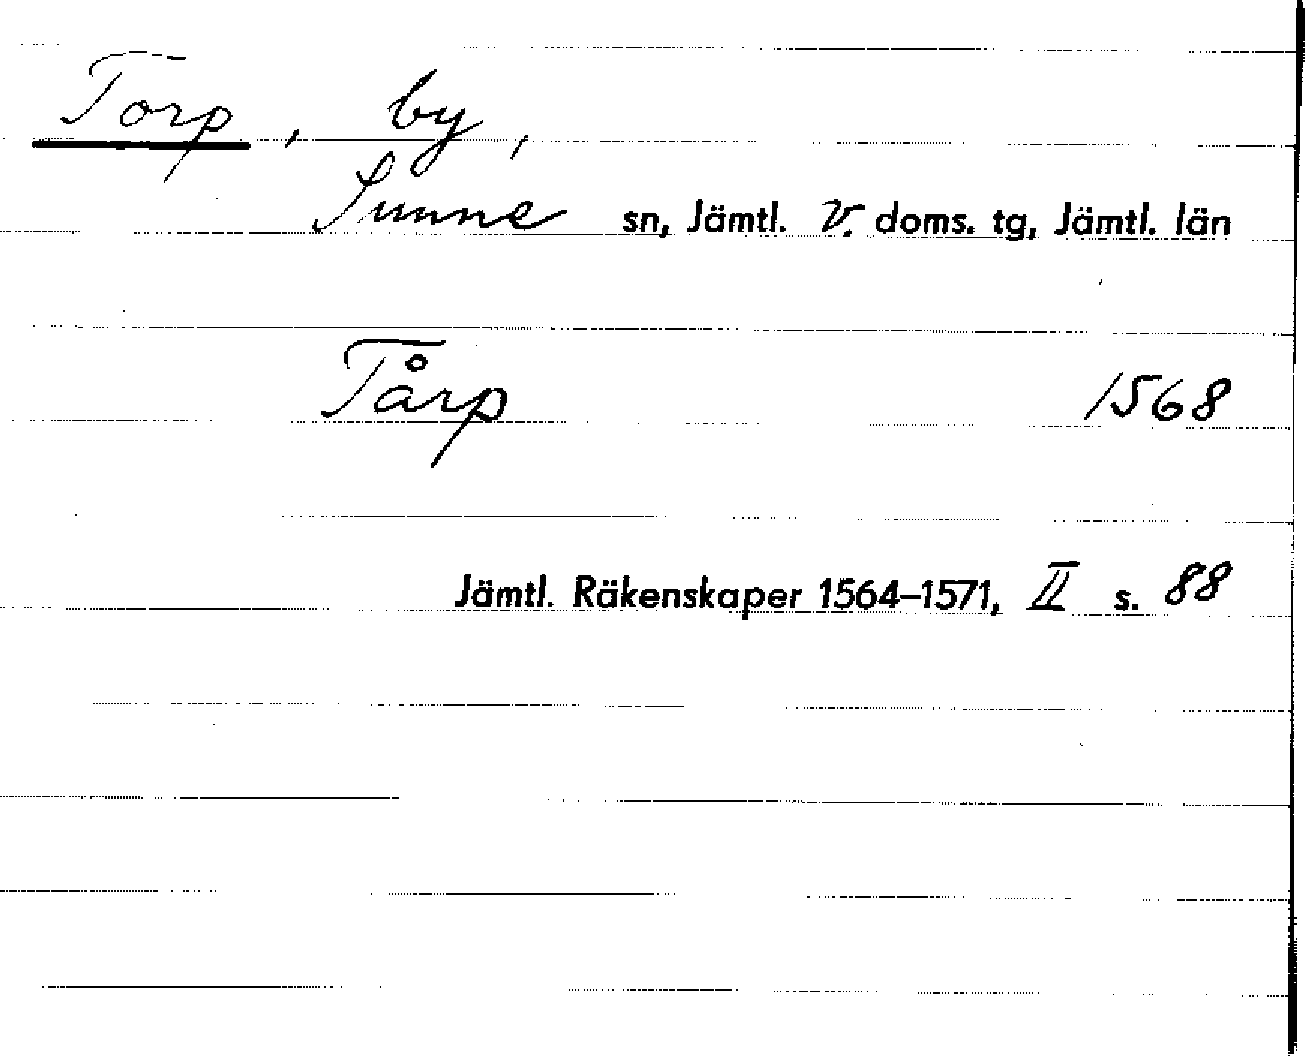 Torp, by,
Sunne sn, Jämtl. V. doms. tg, Jämtl. län
Tårp 1568
Jämtl. Räkenskaper 1564–1571, II s. 88